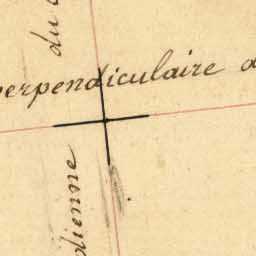 du
perpendiculaire
dienne